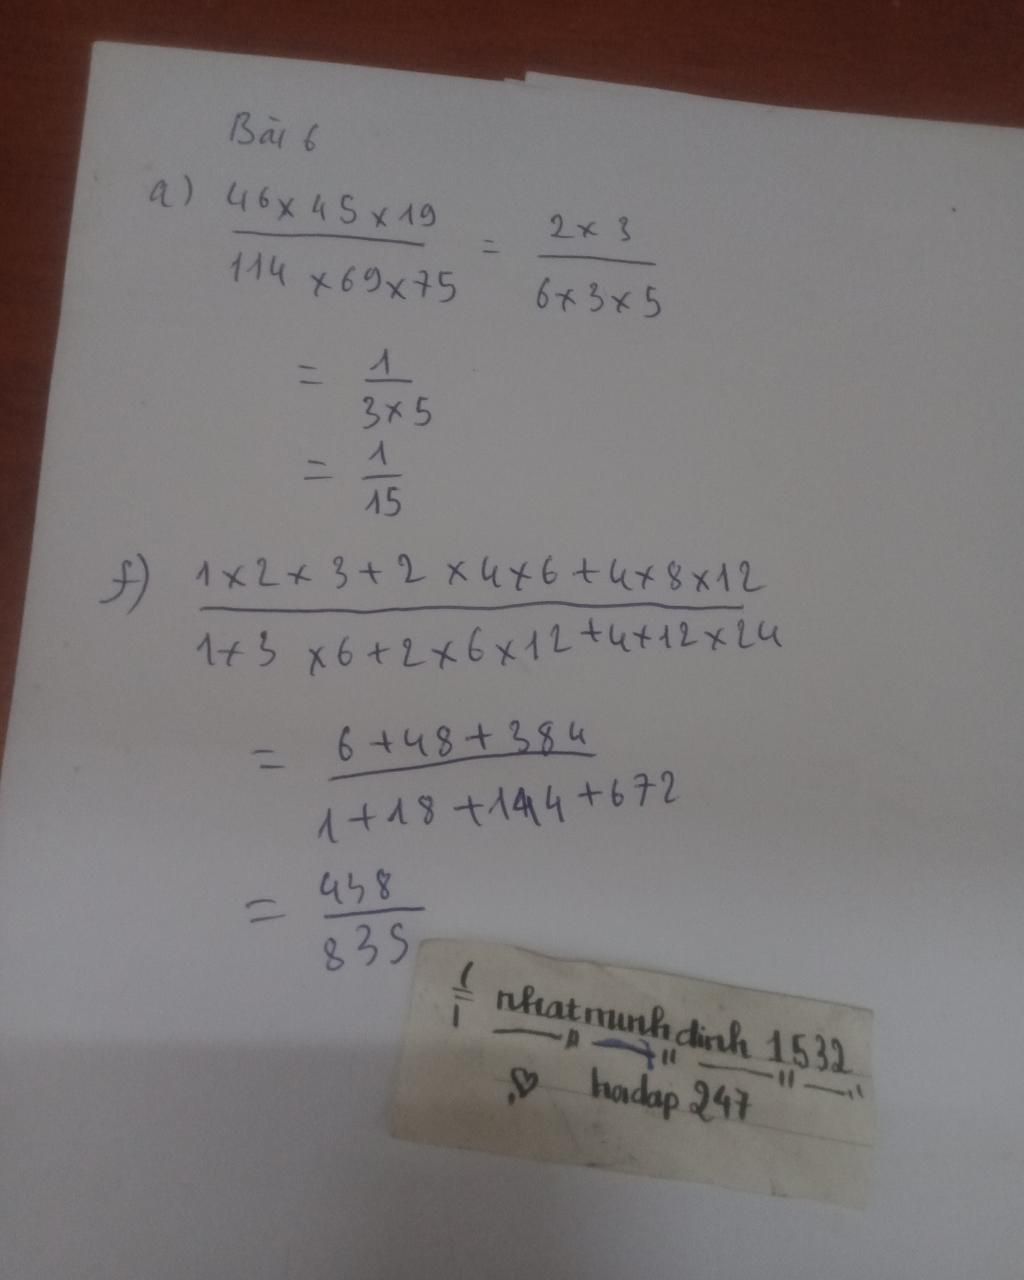 Bài 6
a) 46 x 45 x 19 / 114 x 69 x 75 = 2 x 3 / 6 x 3 x 5
= 1 / 3 x 5
= 1 / 15
f) 1 x 2 x 3 + 2 x 4 x 6 + 4 x 8 x 12 / 1 + 3 x 6 + 2 x 6 x 12 + 4 + 12 x 24
= 6 + 48 + 384 / 1 + 18 + 144 + 672
= 438 / 835
nhatminhdinh 1532
hoidap 247